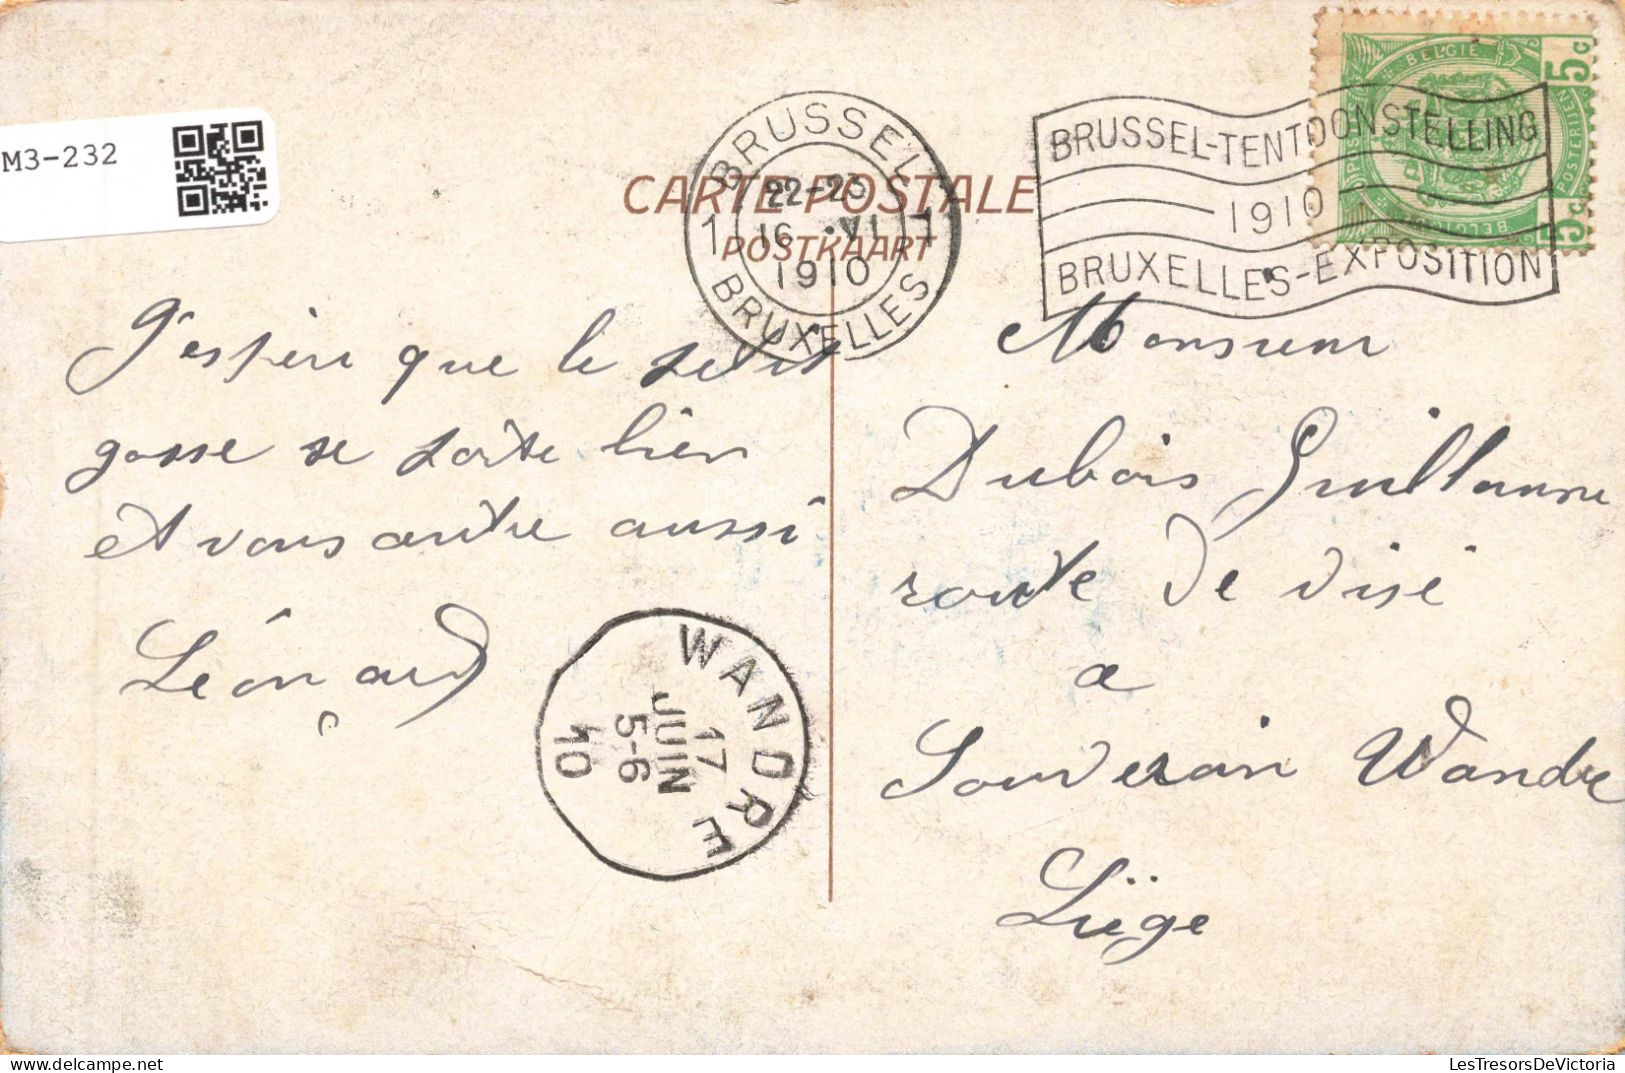 M3-232
BRUSSEL
1 22-23 1
16 VI
1910
BRUXELLES
BRUSSEL-TENTOONSTELLING
1910
BRUXELLES-EXPOSITION
BELGIE
5c
5c
POSTERIJEN
CARTE POSTALE
POSTKAART
J'espère que le petit
gosse se porte bien
et vous autre aussi
Léonard
WANDRE
17
JUIN
5-6
10
Monsieur
Dubois Guillaume
route de visé
a
Souverain Wandre
Liège
LesTresorsDeVictoria